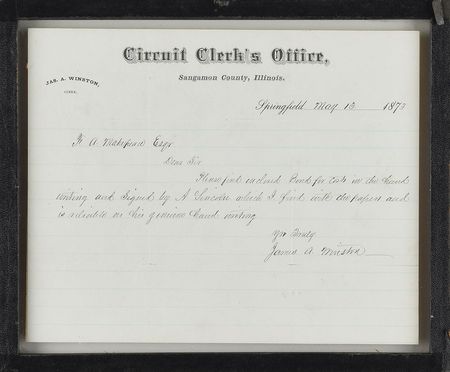 Circuit Clerk's Office,
Sangamon County, Illinois.
JAS. A. WINSTON,
CLERK.
Springfield May 13 1873
A Esqr
Dear Sir
Please find inclosed Bond for Costs in the hand
writing and signed by A Lincoln which I find with the papers and
is reliable as his genuine hand writing
Yr Truly
James A Winston